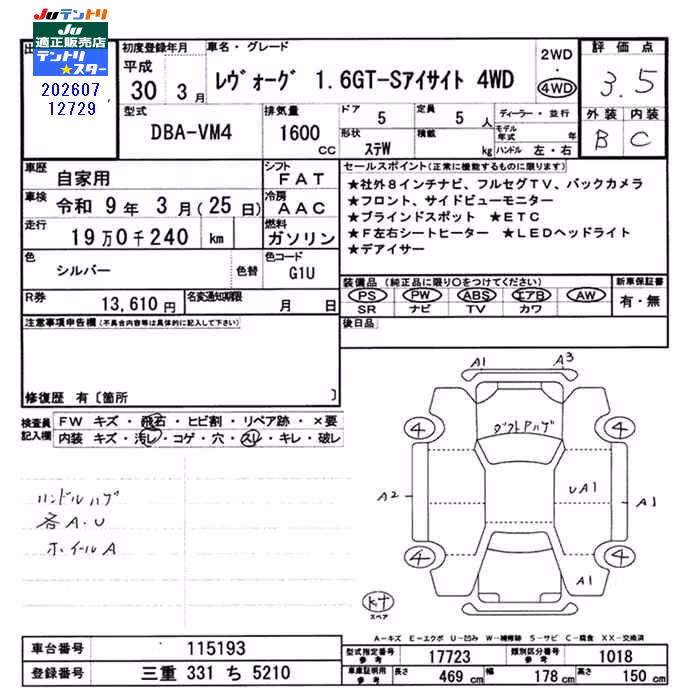 Juテントリ
Ju
適正販売店
テントリ
★スター
202607
12729
初度登録年月
平成
30 3月
車名・グレード
レヴォーグ 1.6GT-Sアイサイト 4WD
2WD
・
4WD
評価点
3.5
外装 内装
B C
型式
DBA-VM4
排気量
1600
CC
ドア
5
形状
ステW
定員
5人
積載
kg
ディーラー・並行
モデル年式 年
ハンドル 左・右
車歴
自家用
シフト
FAT
車検
令和 9年 3月(25日)
冷房
AAC
走行
19万0千240 km
燃料
ガソリン
色
シルバー
色替
色コード
G1U
R券
13,610円
名変通知期限
月 日
セールスポイント(正常に機能するものに限ります)
★社外8インチナビ、フルセグTV、バックカメラ
★フロント、サイドビューモニター
★ブラインドスポット ★ETC
★F左右シートヒーター ★LEDヘッドライト
★デアイサー
装備品(純正品に限り○をつけてください)
PS PW ABS エアB AW
SR ナビ TV カワ
新車保証書
有・無
後日品
注意事項申告欄(不具合内容等は具体的に記入して下さい)
修復歴 有〔箇所 〕
検査員
記入欄
FW キズ・飛石・ヒビ割・リペア跡・×要
内装 キズ・汚レ・コゲ・穴・スレ・キレ・破レ
ハンドルハゲ
各A・U
ホイールA
A1 A3
4 4
ダクトPハゲ
A2
UA1
A1
4 4
A1
スペア
A-キズ E-エクボ U-凹み W-補修跡 S-サビ C-腐食 XX-交換済
車台番号
115193
登録番号
三重 331 ち 5210
型式指定番号
参考
17723
類別区分番号
参考
1018
車庫証明用
参考
長さ 469 cm 幅 178 cm 高さ 150 cm